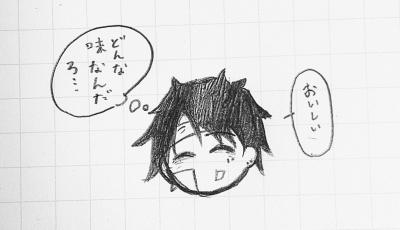 どんな
味なんだ
ろ…
おいしい